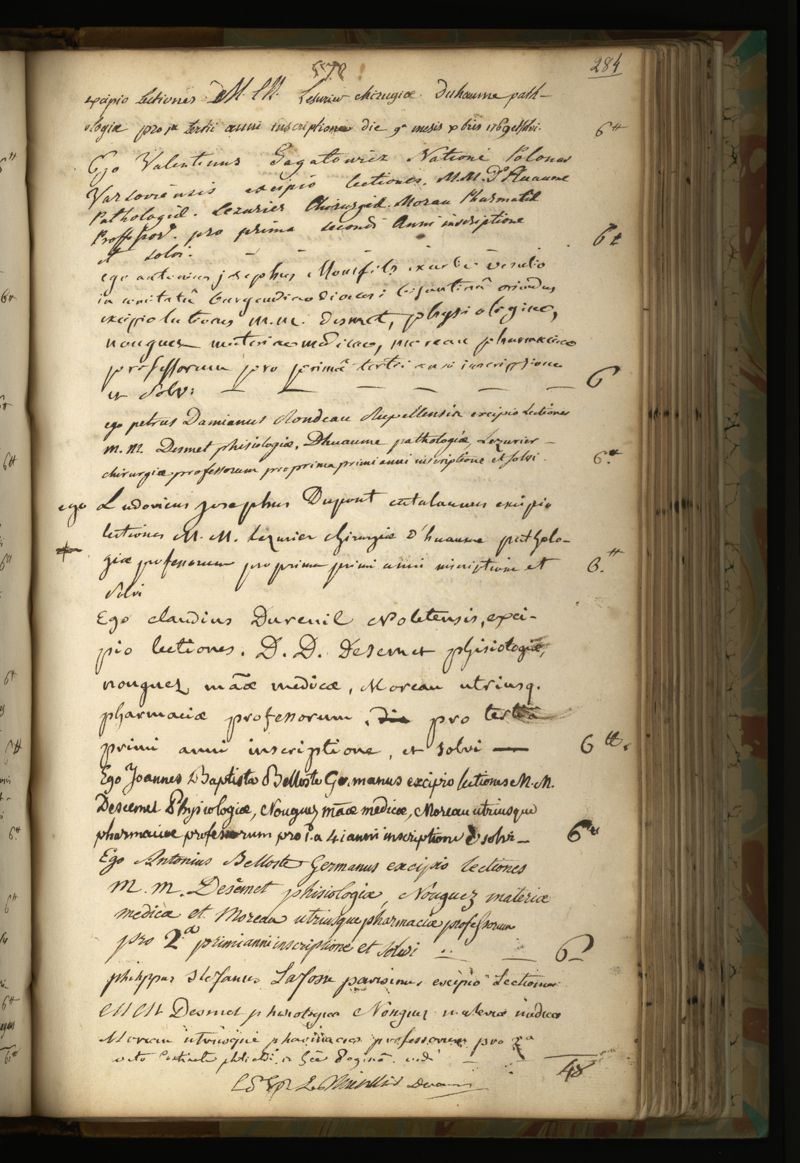 284
excipio lectiones M. M. Lezurier chirurgiæ Duhaume path-
ologiæ pro 1a tertii anni inscriptione die 9a mensis 6 tt
Ego Valentinus Gagatowicz Natione Polonus
Varsoviensis excipio lectiones. M.M. D'huaume
Pathologiæ. Lezurier Chirurgiæ. Moreau Pharmatiæ
Proffessor. pro prima secundi Anni inscriptione
et solvi. 6 tt
ego antonius josephus Monsfils
in burgundiæ oriundus
excipio lectiones m.m. desmet, physiologiæ,
nouguez materiæ medicæ, moreau pharmaciæ
professorum pro primâ tertii anni inscriptione
et solvi 6
ego petrus Damianus Rondeau Rupellensis excipio Lectiones
m.m. Desmet phisiologiæ, Dhuaume pathologiæ, Lezurier
chirurgiæ professorum pro prima primi anni inscriptione et solvi. 6 tt
ego Ludovicus josephus Dupont catalaunus excipio
lectiones M. M. Lezurier chirurgiæ d'huaume patholo-
giæ professorum pro prima primi anni inscriptione et 6. tt
solvi
Ego claudius Dureuil Noletensis, exci-
pio lectiones. D. D. Desemet phisiologiæ,
nouguez māæ medicæ, Moreau utriusq.
pharmaciæ professorum, pro tertia
primi anni inscriptione, et solvi 6 tt.
Ego Joannes Baptista Belloste Germanus excipio lectiones M. M.
Descemet Physiologiæ, Nouguez māæ medicæ, Moreau utriusque
pharmaciæ professorum pro 1.a 4i anni inscriptione & solvi 6 tt
Ego Antonius Belloste Germanus excipio lectiones
M. M. Desemet phisiologia, Nouguez materiæ
medicæ et Moreau utriusque pharmaciæ professorum
pro 2.a primi anni inscriptione et solvi 6
philippus stefanus Lafosse parisinus excipio Lectiones
M M Desmet phisiologiæ Nouguez materiæ medicæ
Moreau utriusque pharmaciæ professorum pro
48